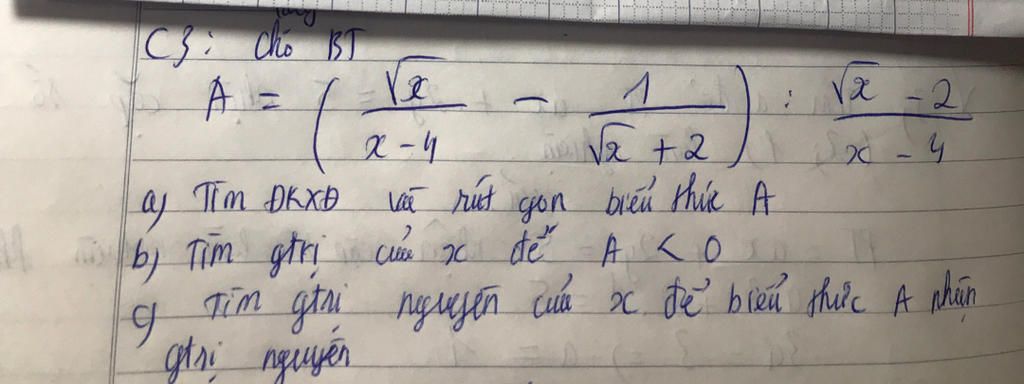 C3: Cho BT
A = ( √x / x - 4 - 1 / √x + 2 ) : √x - 2 / x - 4
a) Tìm ĐKXĐ và rút gọn biểu thức A
b) Tìm gtrị của x để A < 0
c) Tìm gtrị nguyên của x để biểu thức A nhận
gtrị nguyên